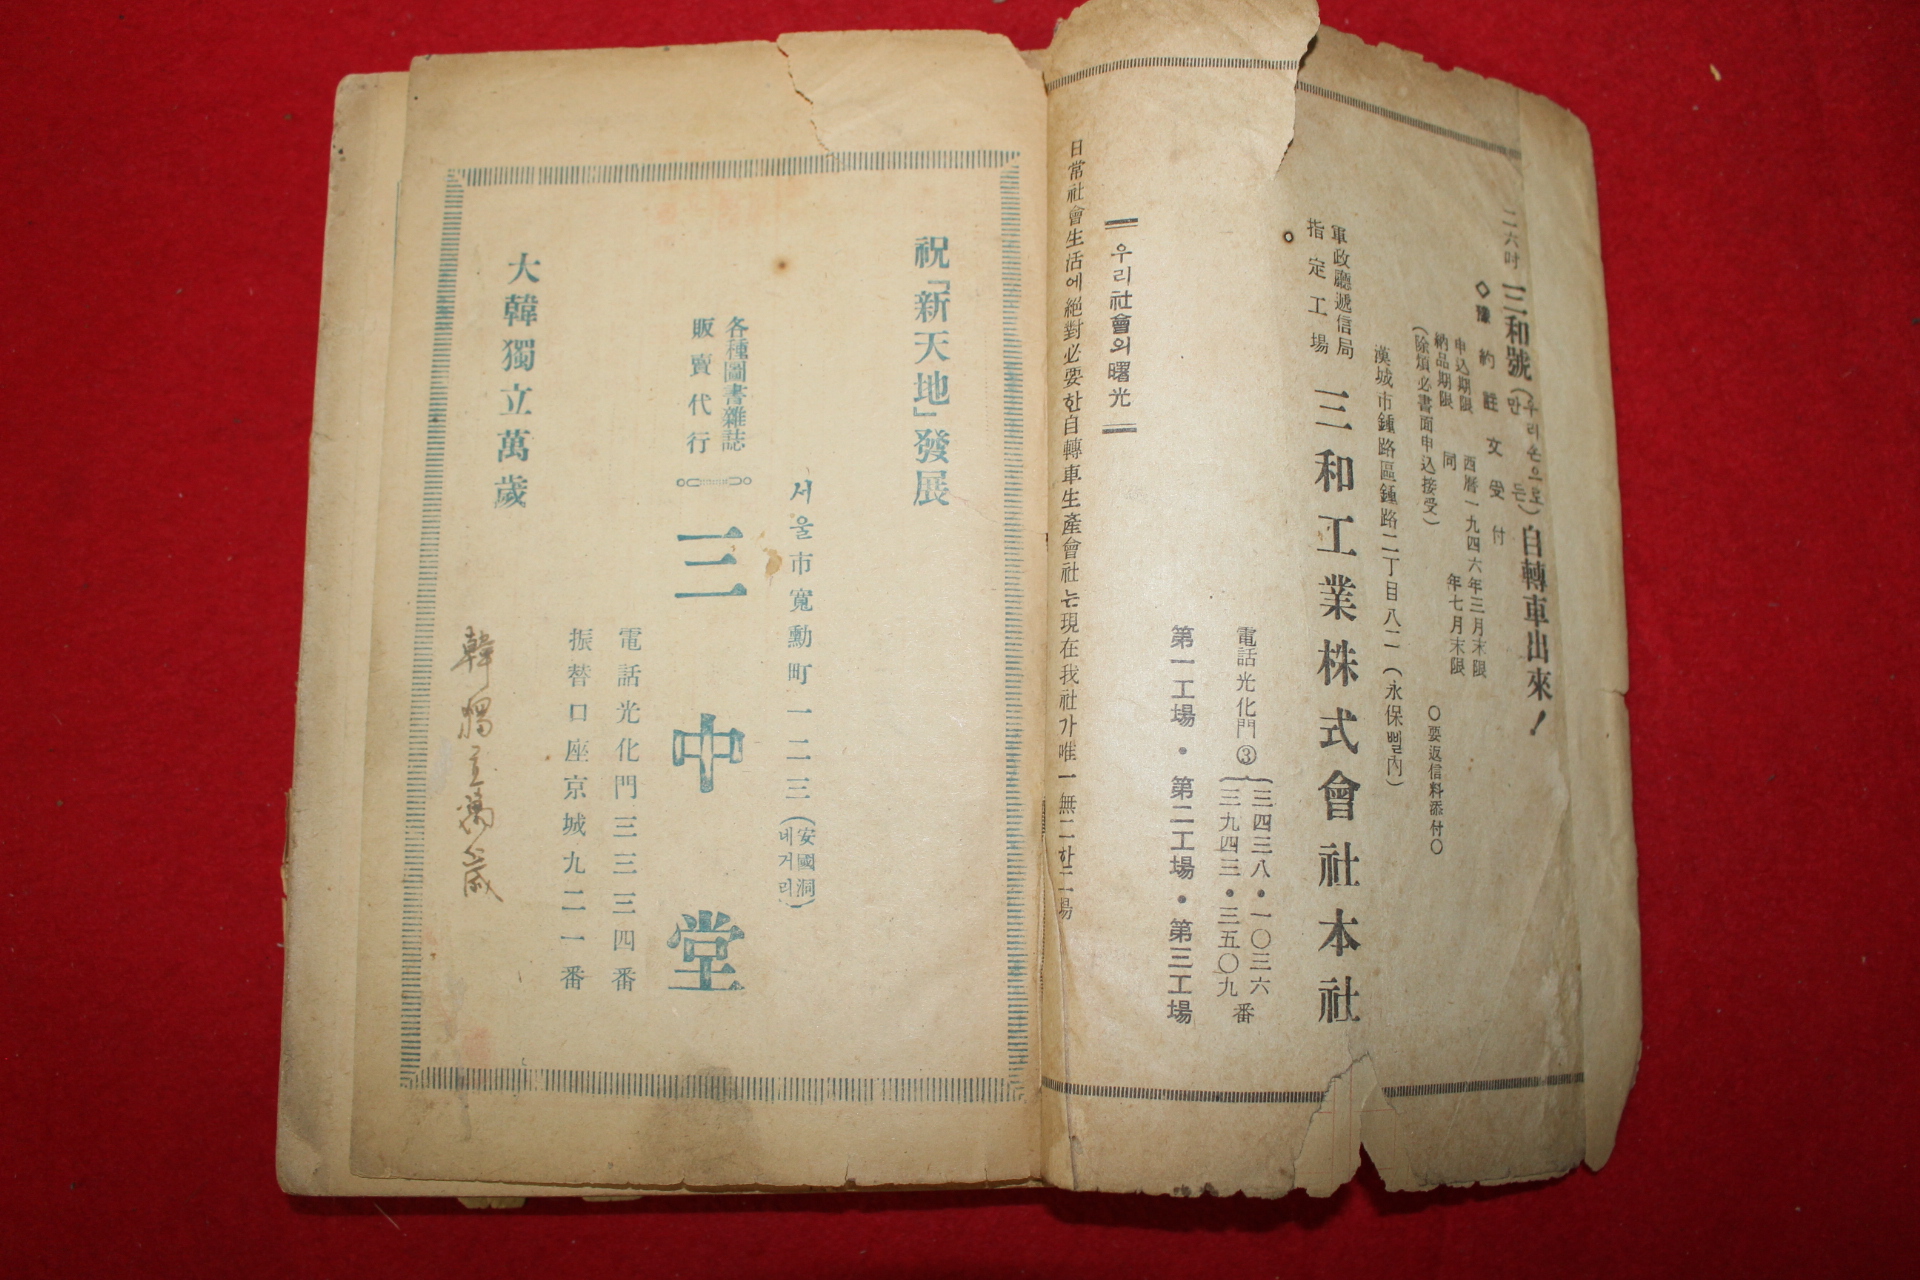 二六吋 三和號(우리손으로만든)自轉車出來!
◇豫約註文受付
申込期限 西曆一九四六年三月末限
納品期限 同 年七月末限
(除煩必書面申込接受)
○要返信料添付○
漢城市鍾路區鍾路二丁目八二 (永保삘內)
軍政廳遞信局
指定工場
三和工業株式會社本社
電話光化門③(三四三八・一〇三六
三九四三・三五〇九番
第一工場・第二工場・第三工場
우리社會의曙光
日常社會生活에絕對必要한自轉車生產會社는現在我社가唯一無二한工場
祝「新天地」發展
서울市寬勳町一二三(安國洞네거리)
各種圖書雜誌
販賣代行
三中堂
電話光化門三三三四番
振替口座京城九二一番
大韓獨立萬歲
韓獨立萬歲